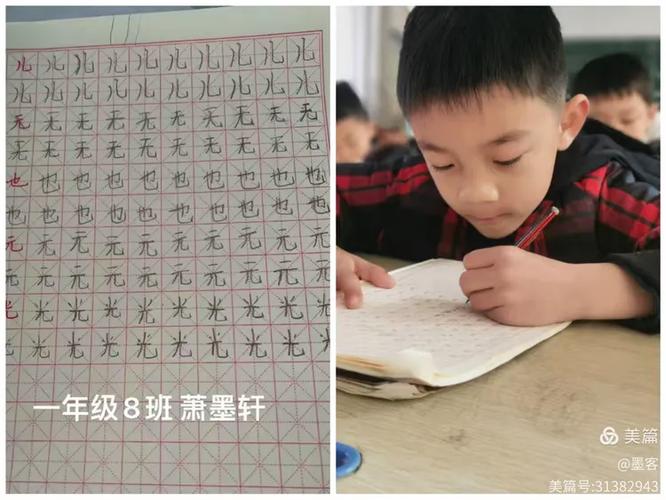 儿儿儿儿儿儿儿儿儿儿
儿儿儿儿儿儿儿儿儿儿
无无无无无无无无无无
无无无无无无无无无无
也也也也也也也也也也
也也也也也也也也也也
元元元元元元元元元元
元元元元元元元元元元
光光光光光光光光光光
光光光光光光光光光光
一年级8班 萧墨轩
美篇
@墨客
美篇号:31382943